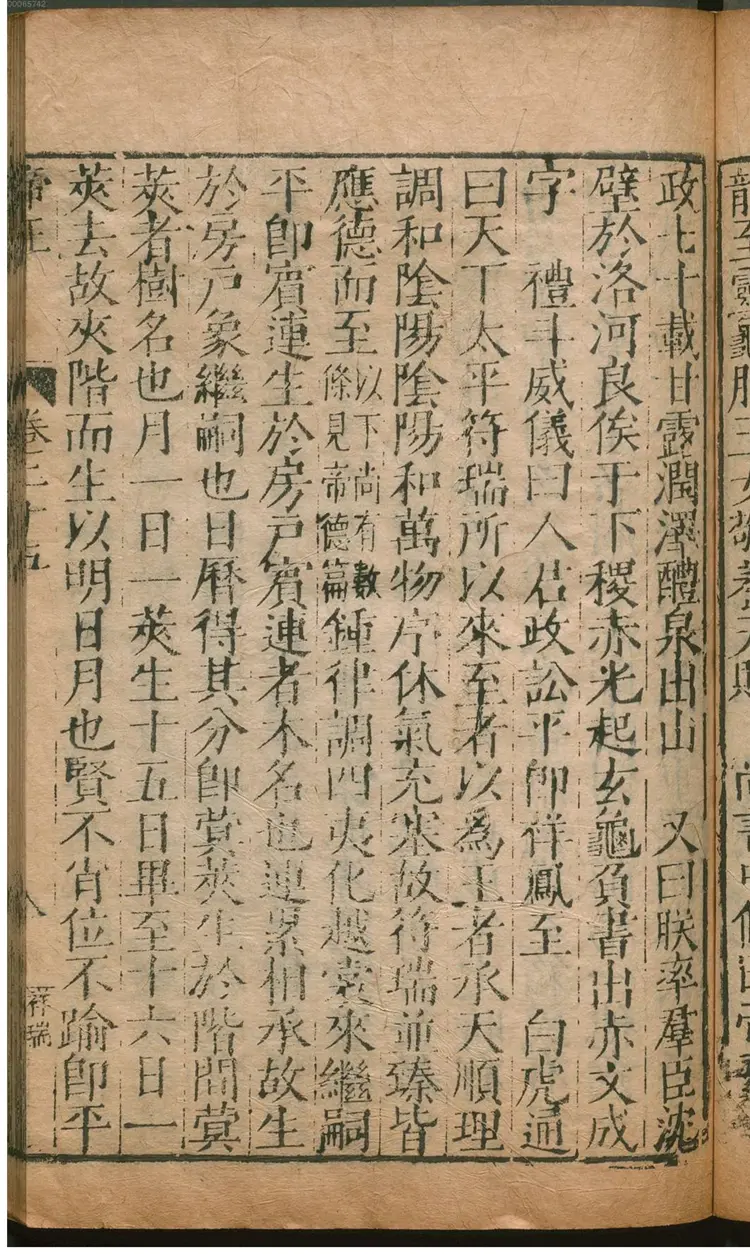 政七十載甘露潤澤醴泉出山　又曰朕率羣臣沈
壁於洛河良俟于下稷赤光起玄龜負書出赤文成
字　禮斗威儀曰人君政訟平卽祥鳳至　白虎通
曰天下太平符瑞所以來至者以爲王者承天順理
調和陰陽陰陽和萬物序休氣充塞故符瑞並臻皆
應德而至以下尚有數條見帝德篇鍾律調四夷化越裳來繼嗣
平卽賓連生於房戶賓連者木名也連累相承故生
於房戶象繼嗣也日曆得其分卽蓂莢生於階間蓂
莢者樹名也月一日一莢生十五日畢至十六日一
莢去故夾階而生以明日月也賢不肖位不踰卽平
帝王　卷二十五　八　符瑞
00065742